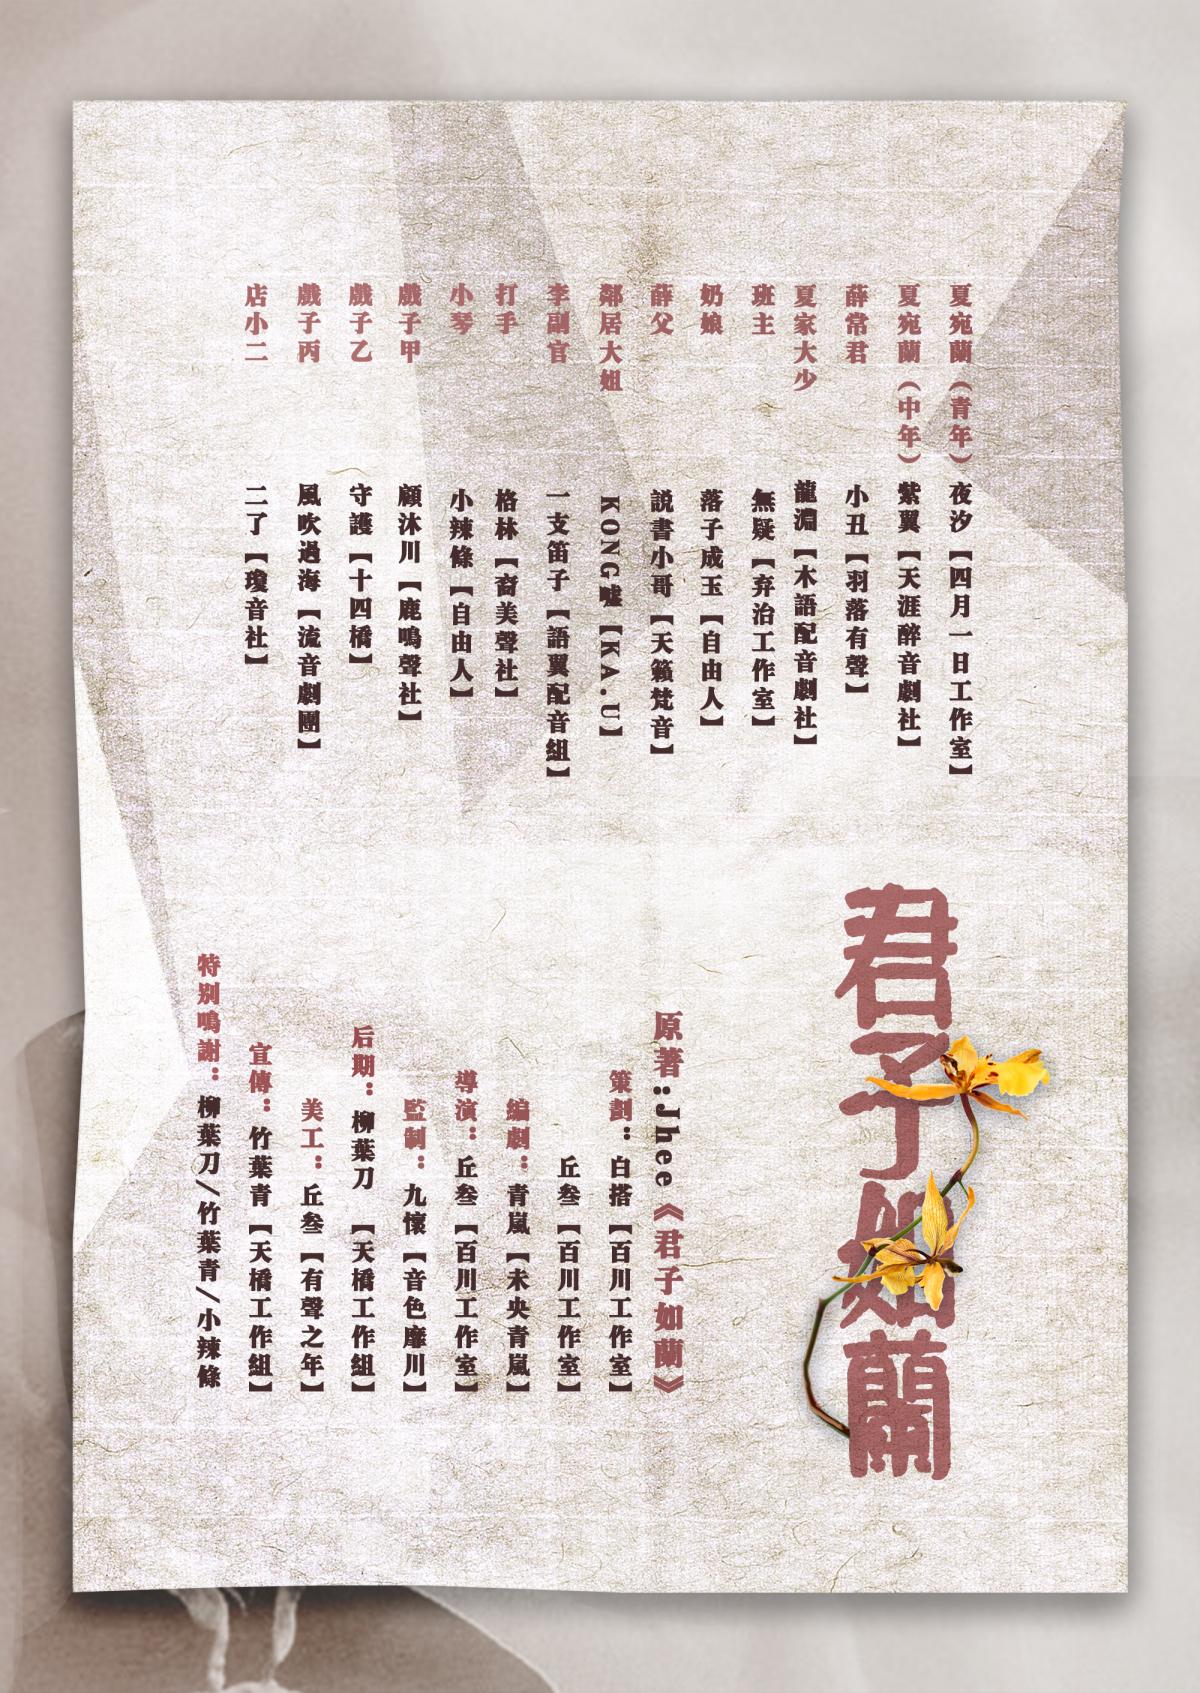 夏宛蘭（青年） 夜汐【四月一日工作室】
夏宛蘭（中年） 紫翼【天涯醉音劇社】
薛常君 小丑【羽落有聲】
夏家大少 龍淵【木語配音劇社】
班主 無疑【弃治工作室】
奶娘 落子成玉【自由人】
薛父 説書小哥【天籟梵音】
鄰居大姐 KONG嘘【KA.U】
李副官 一支笛子【語翼配音組】
打手 格林【裔美聲社】
小琴 小辣條【自由人】
戲子甲 顧沐川【鹿鳴聲社】
戲子乙 守護【十四橋】
戲子丙 風吹過海【流音劇團】
店小二 二了【瓊音社】
君子如蘭
原著：Jhee《君子如蘭》
策劃：白搭【百川工作室】
丘叁【百川工作室】
編劇：青嵐【未央青嵐】
導演：丘叁【百川工作室】
監制：九懷【音色靡川】
后期：柳葉刀【天橋工作組】
美工：丘叁【有聲之年】
宣傳：竹葉青【天橋工作組】
特别鳴謝：柳葉刀/竹葉青/小辣條